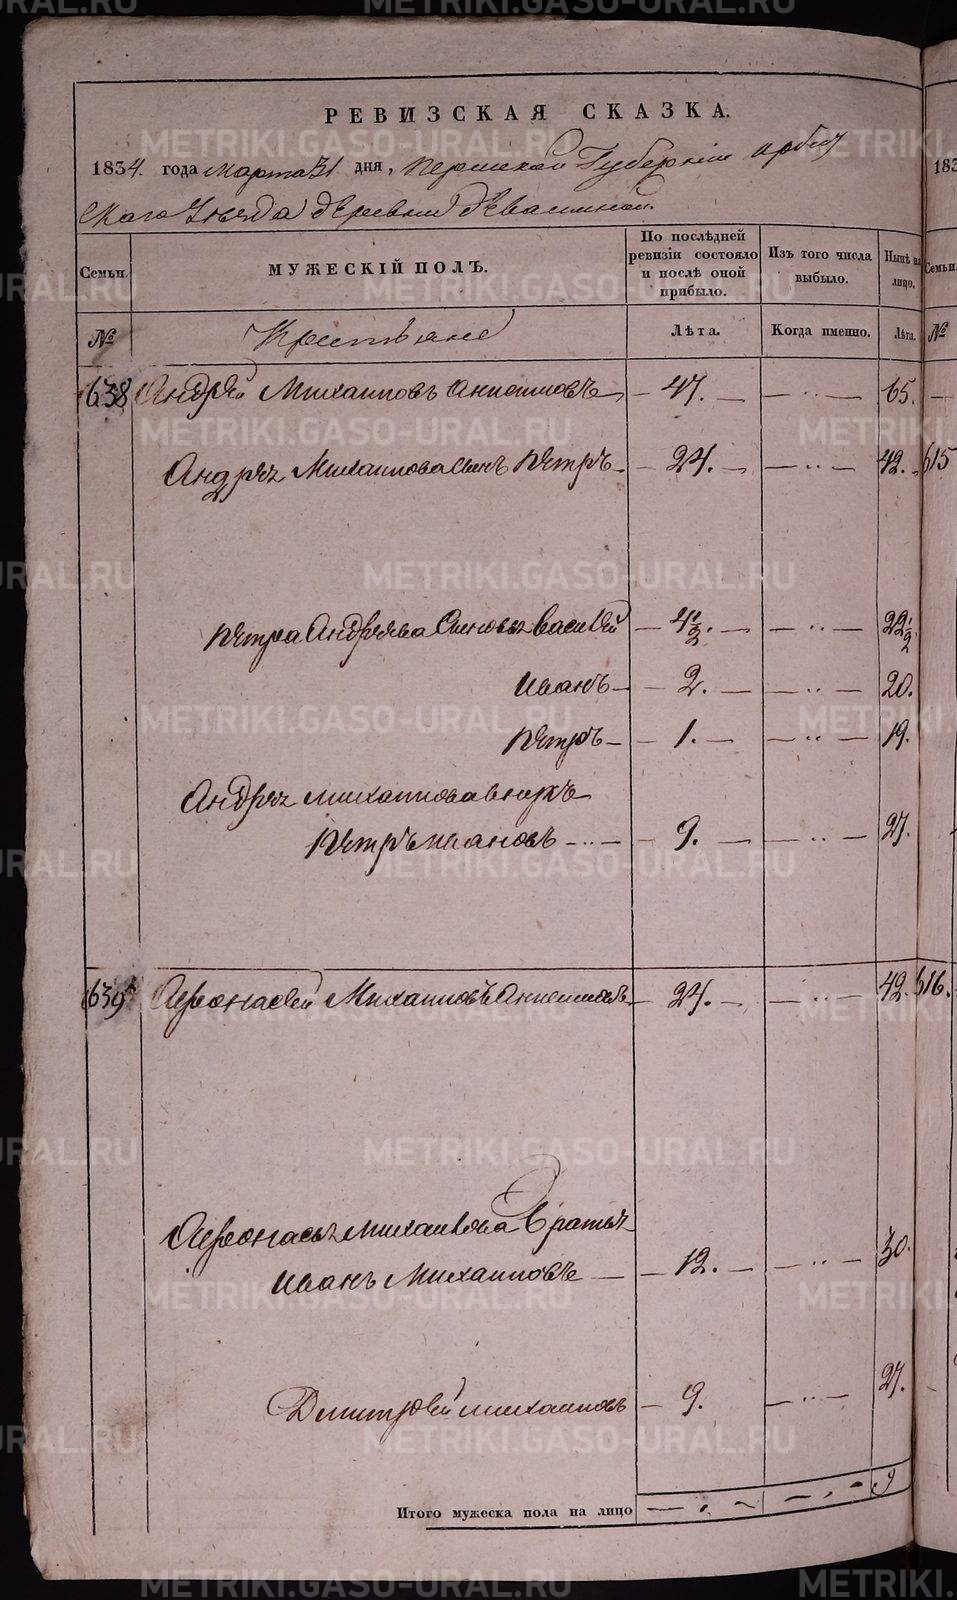 РЕВИЗСКАЯ СКАЗКА.
1834. года марта 31 дня, Пермской Губернiи ирбит
скаго Уезда деревни девашиной.
Семьи. МУЖЕСКIЙ ПОЛЪ. По послѣдней ревизiи состояло и послѣ оной прибыло. Изъ того числа выбыло. Нынѣ на лицо. Семьи.
№ Крестьяне Лѣта. Когда именно. Лѣта. №
638 Андрей Михаиловъ Анисимовъ 47. 65.
Андрея Михаилова сынъ Петръ 24. 42. 615
Петра Андреева Сыновья Василей 4½. 22½
Иванъ 2. 20.
Петръ 1. 19.
Андрея михаилова внукъ
Петръ ивановъ 9. 27.
639 Афонасей Михаиловъ Анисимовъ 24. 42. 616.
Афонасья михаилова Братья
Иванъ Михаиловъ 12. 30.
Дмитрей михаиловъ 9. 27.
Итого мужеска пола на лицо 9
METRIKI.GASO-URAL.RU